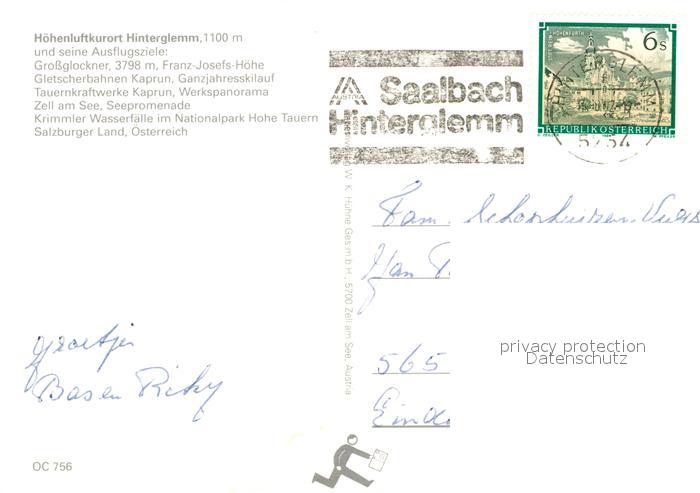 Höhenluftkurort Hinterglemm, 1100 m
und seine Ausflugsziele:
Großglockner, 3798 m, Franz-Josefs-Höhe
Gletscherbahnen Kaprun, Ganzjahresskilauf
Tauernkraftwerke Kaprun, Werkspanorama
Zell am See, Seepromenade
Krimmler Wasserfälle im Nationalpark Hohe Tauern
Salzburger Land, Österreich
AUSTRIA
Saalbach
Hinterglemm
6s
REPUBLIK ÖSTERREICH
5754
W. K. Hühne Ges.m.b.H., 5700 Zell am See, Austria
Fam.
Jan
565
Eind
groetjes
Bas en Ricky
privacy protection
Datenschutz
OC 756